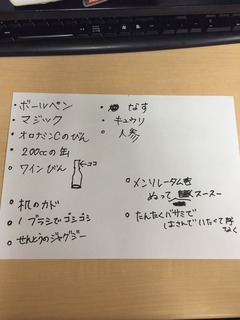 ・ボールペン
・マジック
・オロナミンCのびん
・200ccの缶
・ワインびん
←ココ
・机のカド
・ブラシでゴシゴシ
・せんとうのジャグジー
・なす
・キュウリ
・人参
・メンソレータムを
ぬって スースー
・たんたくバサミで
はさんで いたくて 呼
なく